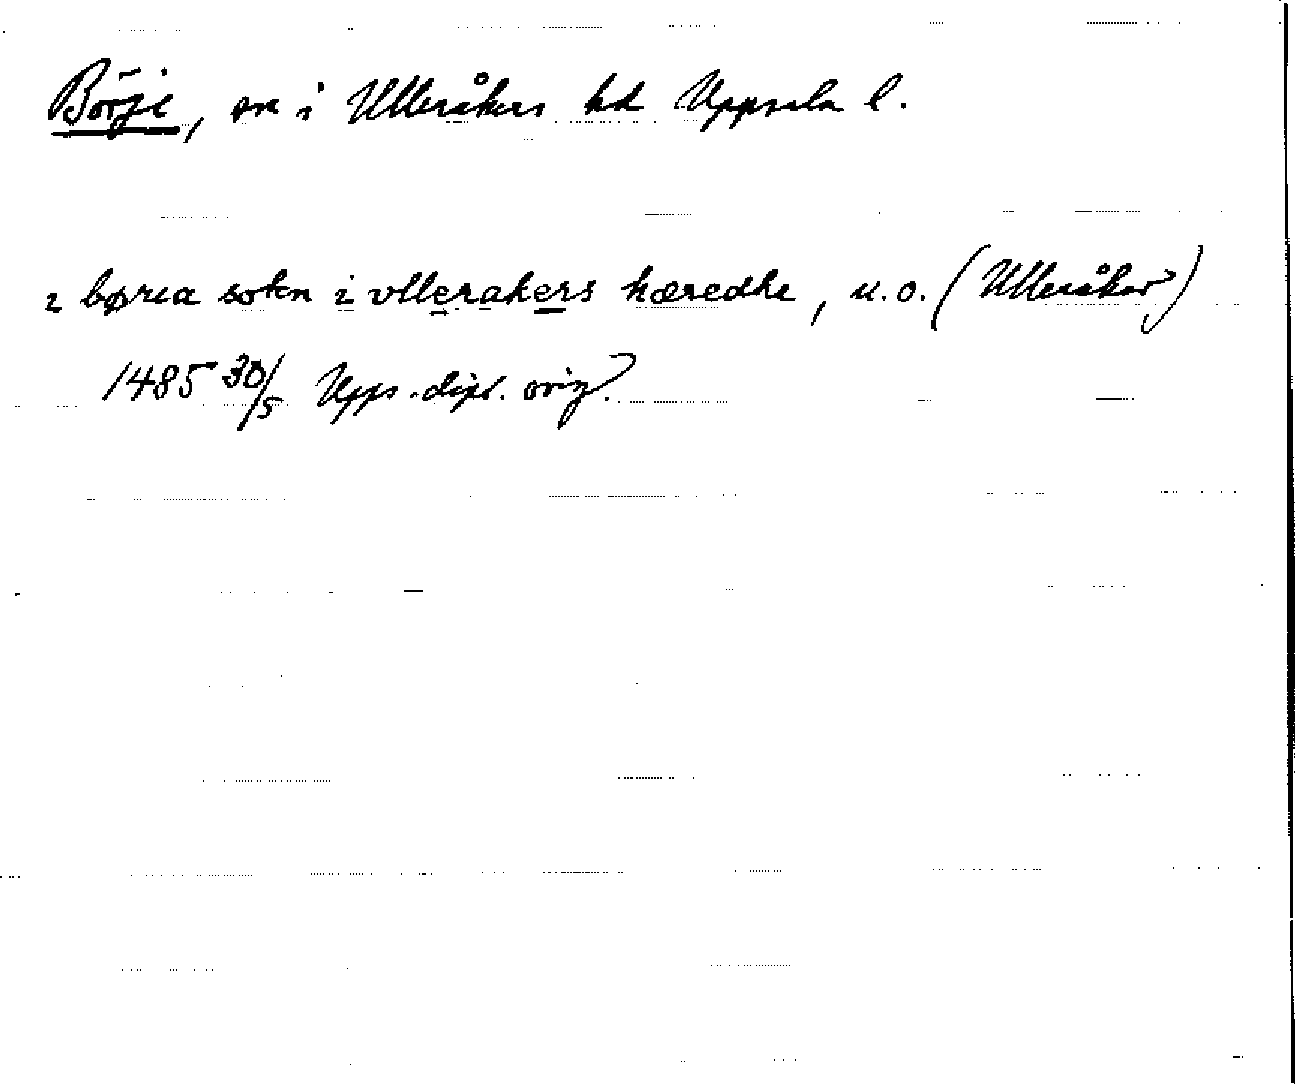 Börje, sn i Ulleråkers hd Uppsala l.
i børia sokn i vllerakers hæredhe, u.o. (Ulleråker)
1485 30/5 Upps. dipl. orig.